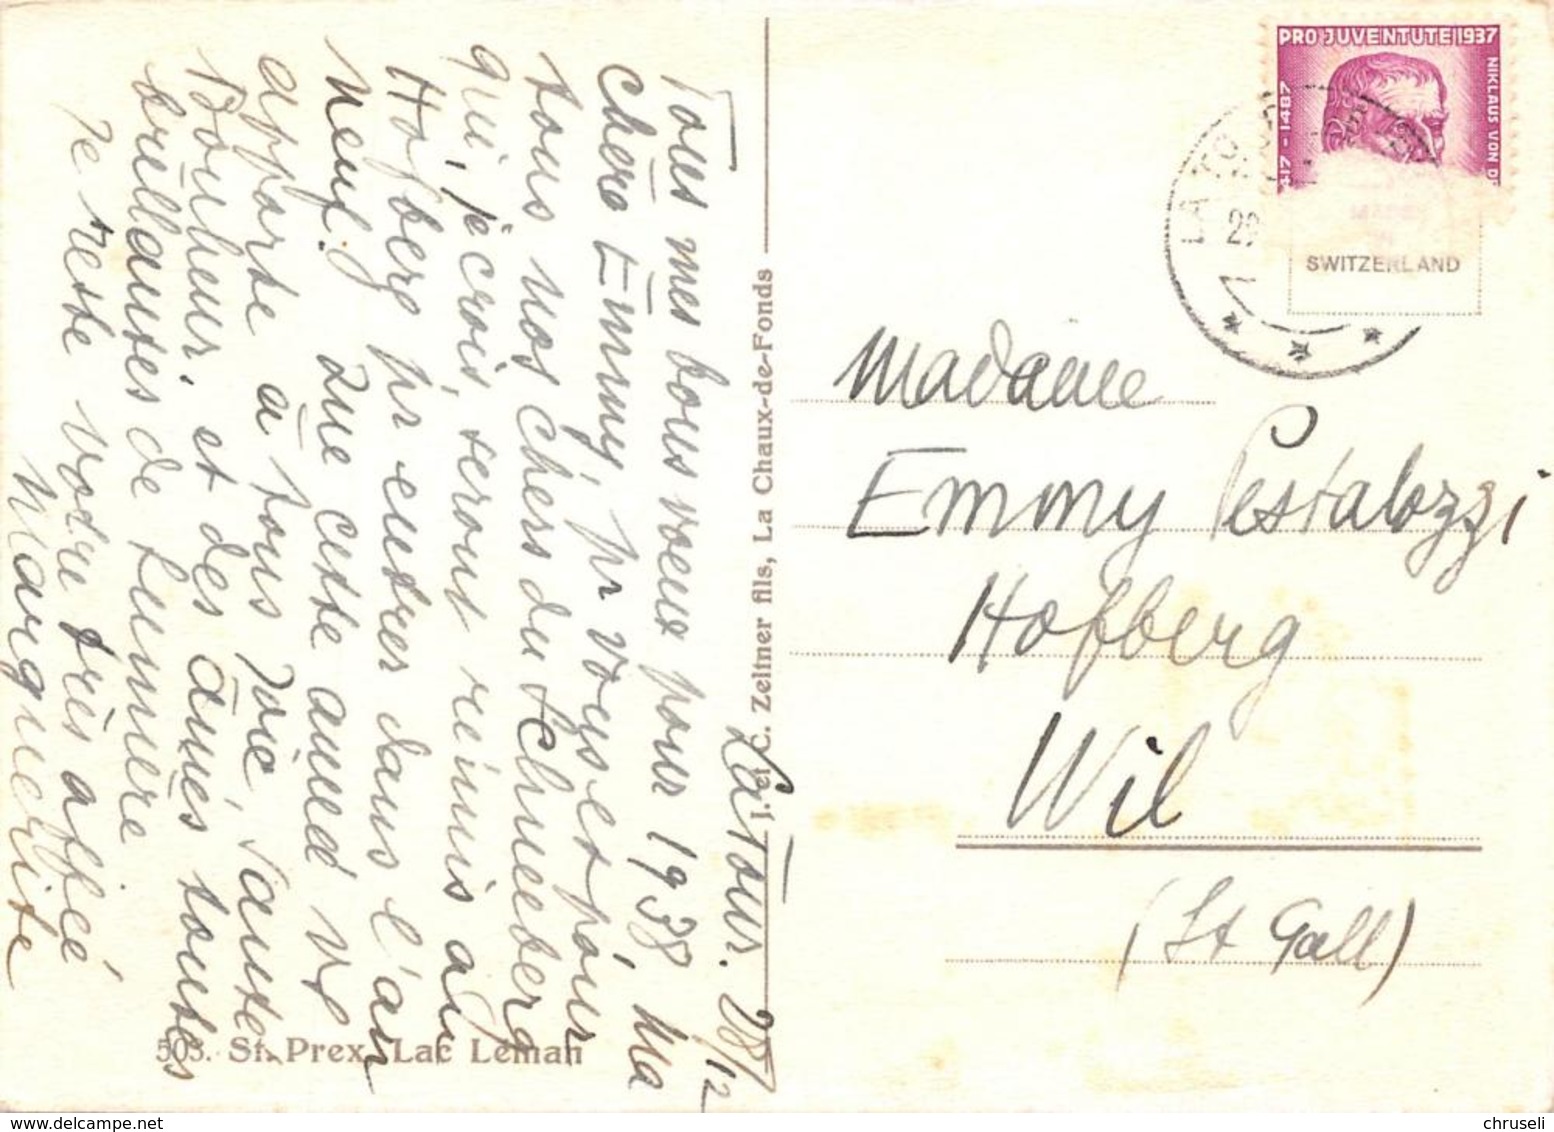 La Tour. 28/12
Tous mes bons voeux pour 1938, Ma
chère Emmy, pr vous et pour
tous nos chers du Schneeberg
qui, je crois, serons réunis au
Hofberg pr entrer dans l'an
Neuf. Que cette année vs
apporte à tous Joie, Santé
Bonheur. et des années toutes
brillantes de Lumière
Je reste votre très affée
Marguerite
503. St. Prex, Lac Léman
J. et C. Zeltner fils, La Chaux-de-Fonds
PRO JUVENTUTE 1937
NIKLAUS VON
1487
LA TO
29
SWITZERLAND
Madame
Emmy Pestalozzi
Hofberg
Wil
(St Gall)
chruseli